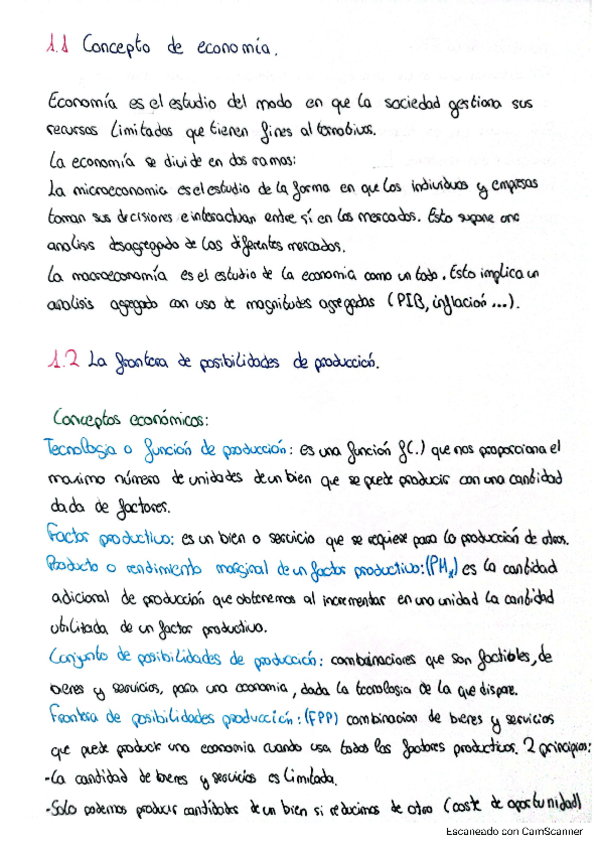 1.1 Concepto de economía.
Economía es el estudio del modo en que la sociedad gestiona sus
recursos limitados que tienen fines alternativos.
La economía se divide en dos ramas:
La microeconomia es el estudio de la forma en que los individuos y empresas
toman sus decisiones e interactuan entre sí en los mercados. Esto supone una
analisis desagregado de los diferentes mercados.
La macroeconomía es el estudio de la economia como un todo. Esto implica un
analisis agregado con uso de magnitudes agregadas (PIB, inflación ...).
1.2 La frontera de posibilidades de producción.
Conceptos económicos:
Tecnología o función de producción: es una función f(.) que nos proporciona el
maximo número de unidades de un bien que se puede producir con una cantidad
dada de factores.
Factor productivo: es un bien o servicio que se requiere para la producción de otros.
Producto o rendimiento marginal de un factor productivo: (PMₓ) es la cantidad
adicional de producción que obtenemos al incrementar en una unidad la cantidad
utilizada de un factor productivo.
Conjunto de posibilidades de producción: combinaciones que son factibles, de
bienes y servicios, para una economía, dada la tecnologia de la que dispone.
Frontera de posibilidades producción: (FPP) combinacion de bienes y servicios
que puede producir una economía cuando usa todos los factores productivos. 2 principios:
-La cantidad de bienes y servicios es limitada.
-Solo podemos producir cantidades de un bien si reducimos de otro (coste de oportunidad)
Escaneado con CamScanner